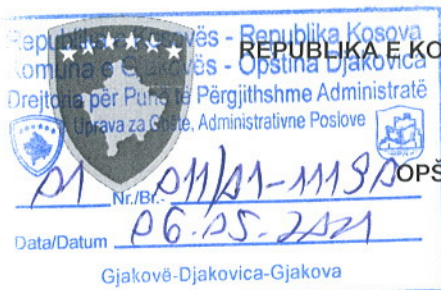 Republika e Kosovës - Republika Kosova
REPUBLIKA E KO
Komuna e Gjakovës - Opština Djakovica
Drejtoria për Punë të Përgjithshme Administratë
Uprava za Opšte, Administrativne Poslove
01 Nr./Br.- 011/01-1119
OPŠ
Data/Datum 06.05.2021
Gjakovë-Djakovica-Gjakova